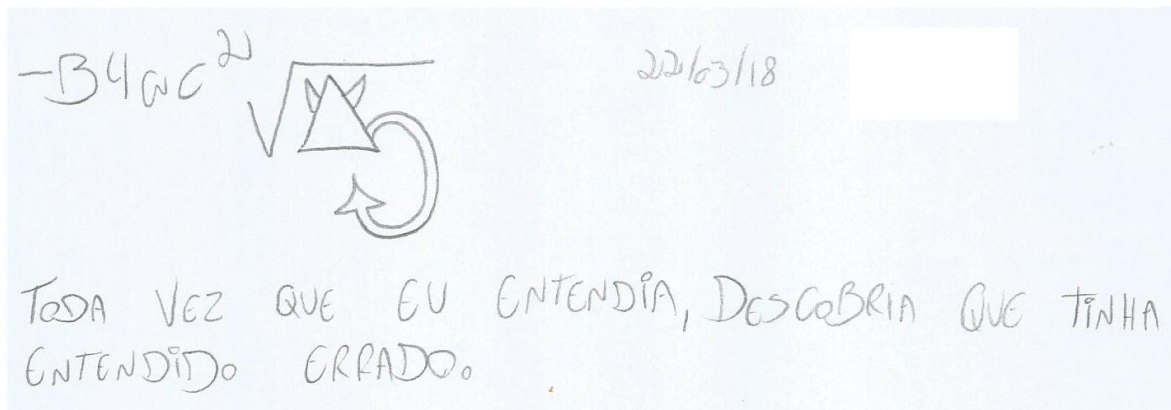 -B4ac² √△ 22/03/18
TODA VEZ QUE EU ENTENDIA, DESCOBRIA QUE TINHA
ENTENDIDO ERRADO.